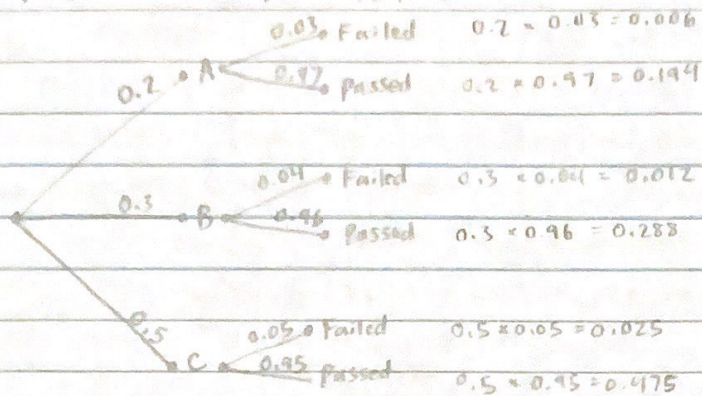 0.03 Failed 0.2 × 0.03 = 0.006
0.2 A 0.97 Passed 0.2 × 0.97 = 0.194
0.04 Failed 0.3 × 0.04 = 0.012
0.3 B 0.96 Passed 0.3 × 0.96 = 0.288
0.5 0.05 Failed 0.5 × 0.05 = 0.025
C 0.95 Passed 0.5 × 0.95 = 0.475